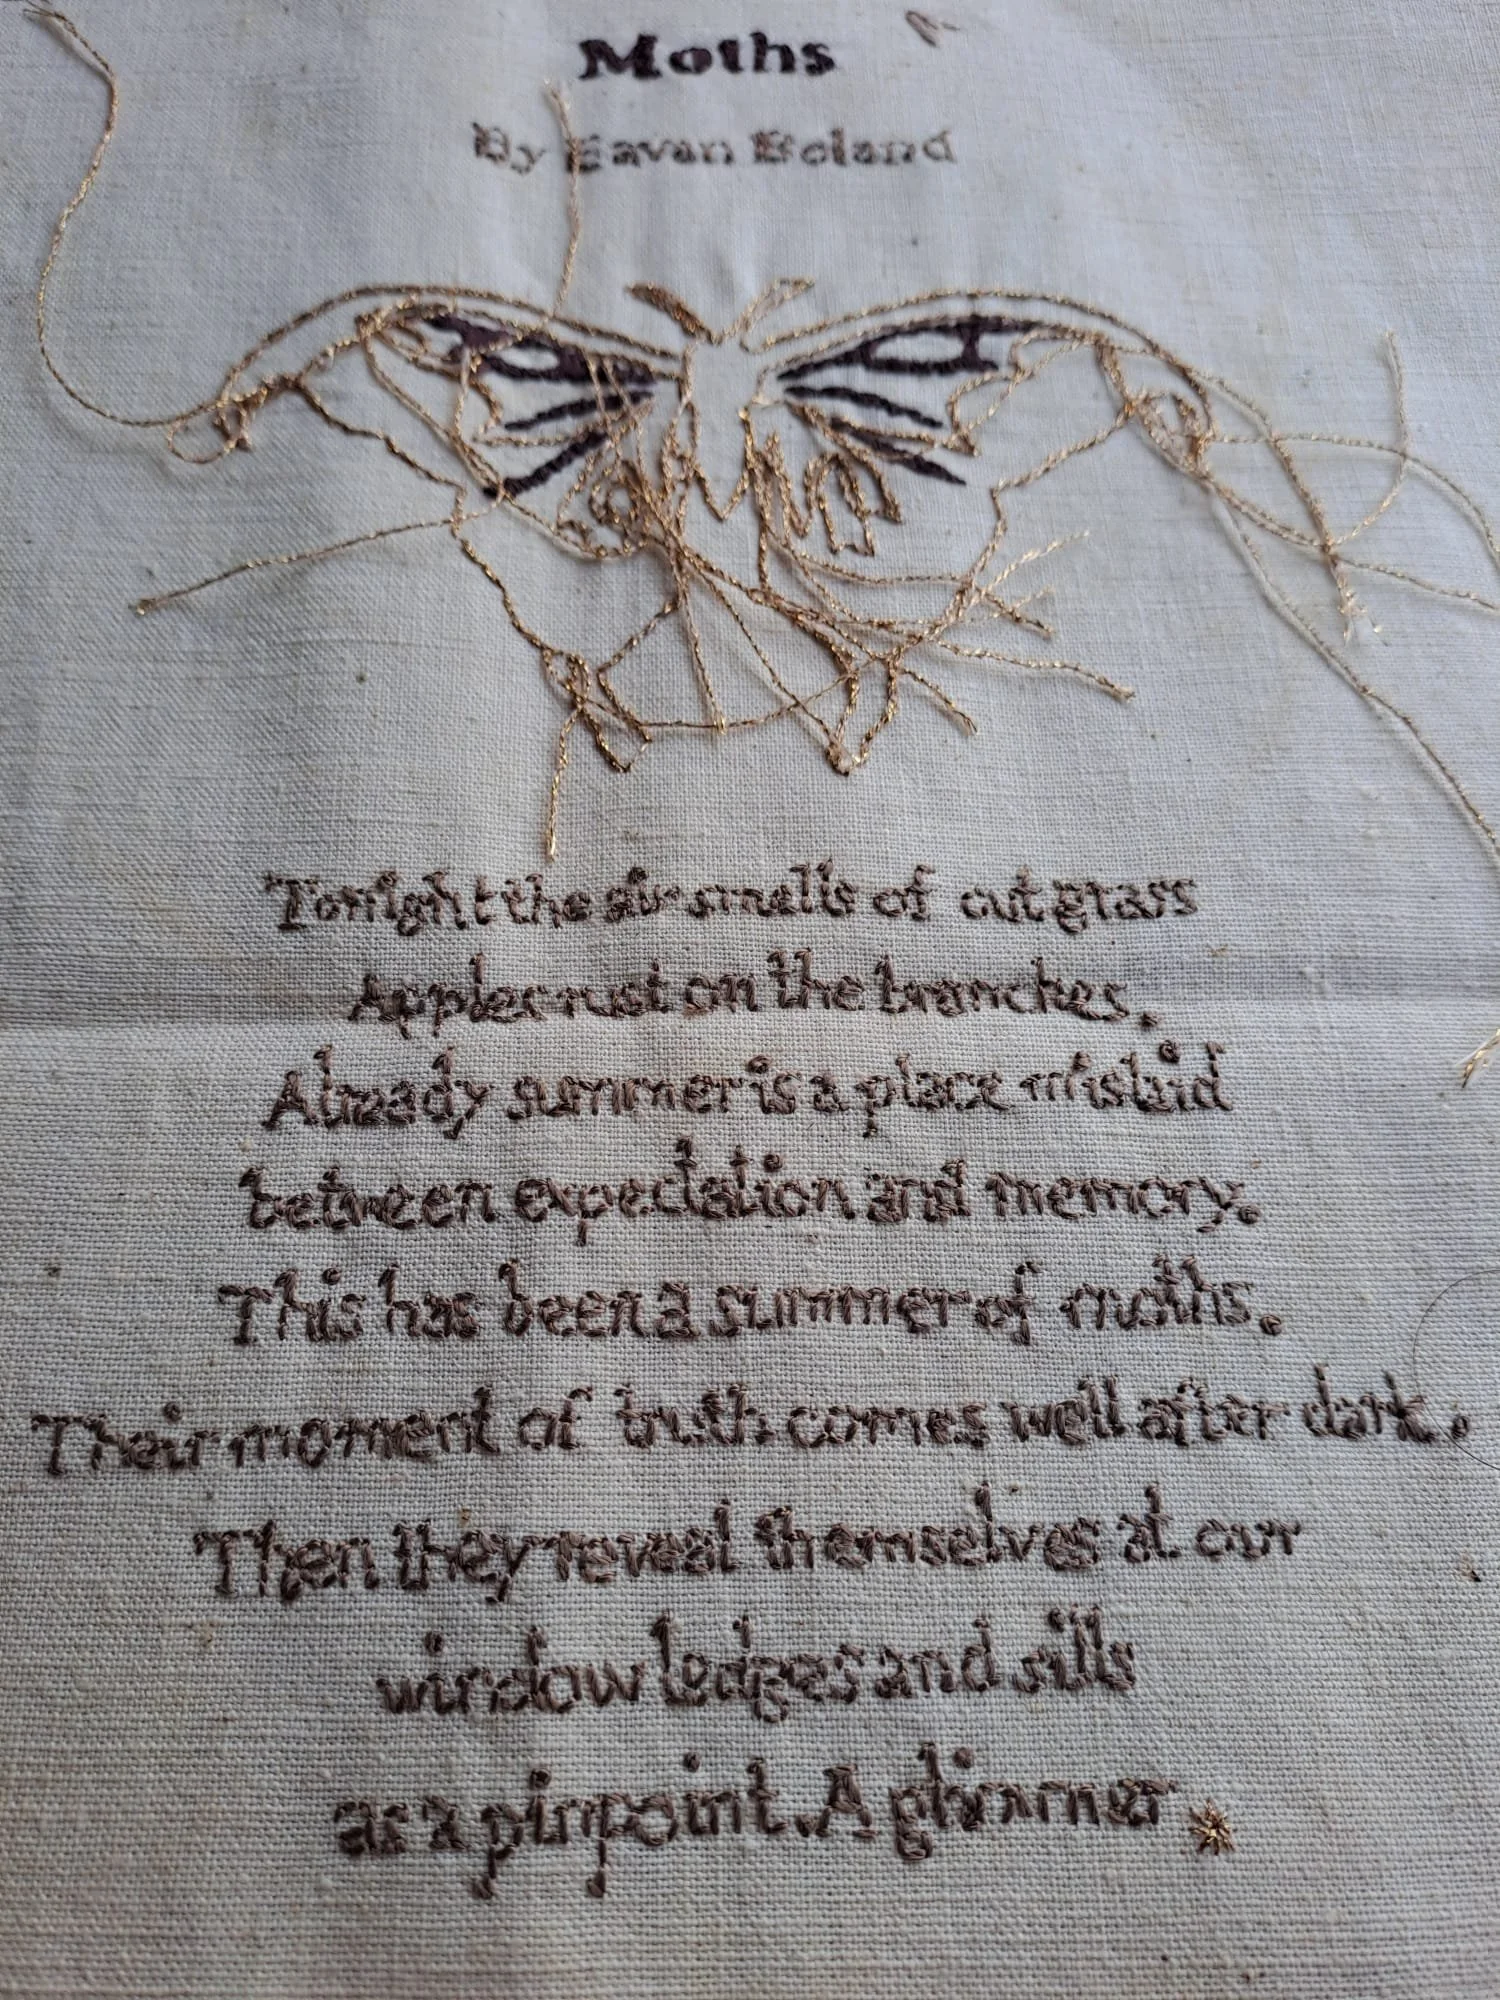 Moths
By Eavan Boland
Tonight the air smells of cut grass
Apples rust on the branches.
Already summer is a place mislaid
between expectation and memory.
This has been a summer of moths.
Their moment of truth comes well after dark.
Then they reveal themselves at our
window ledges and sills
as a pinpoint. A glimmer.